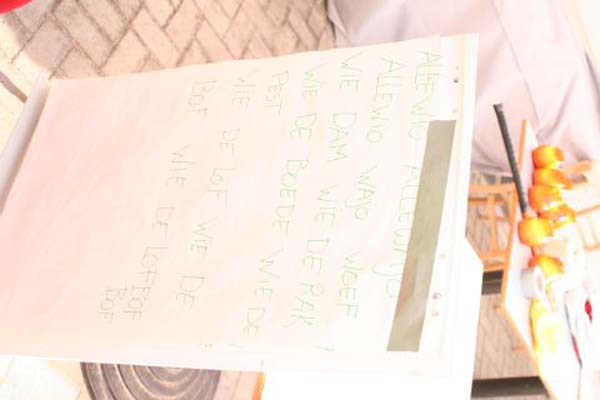 ALLEWIO ALLEWAJO
ALLEWIO WAJO WOEF
WIE DAM WIE DE RAK !
WIE DE BOEDE WIE DE !
PEST
WIE DE LOF WIE DE
BOF
WIE DE LOF BOF
BOF